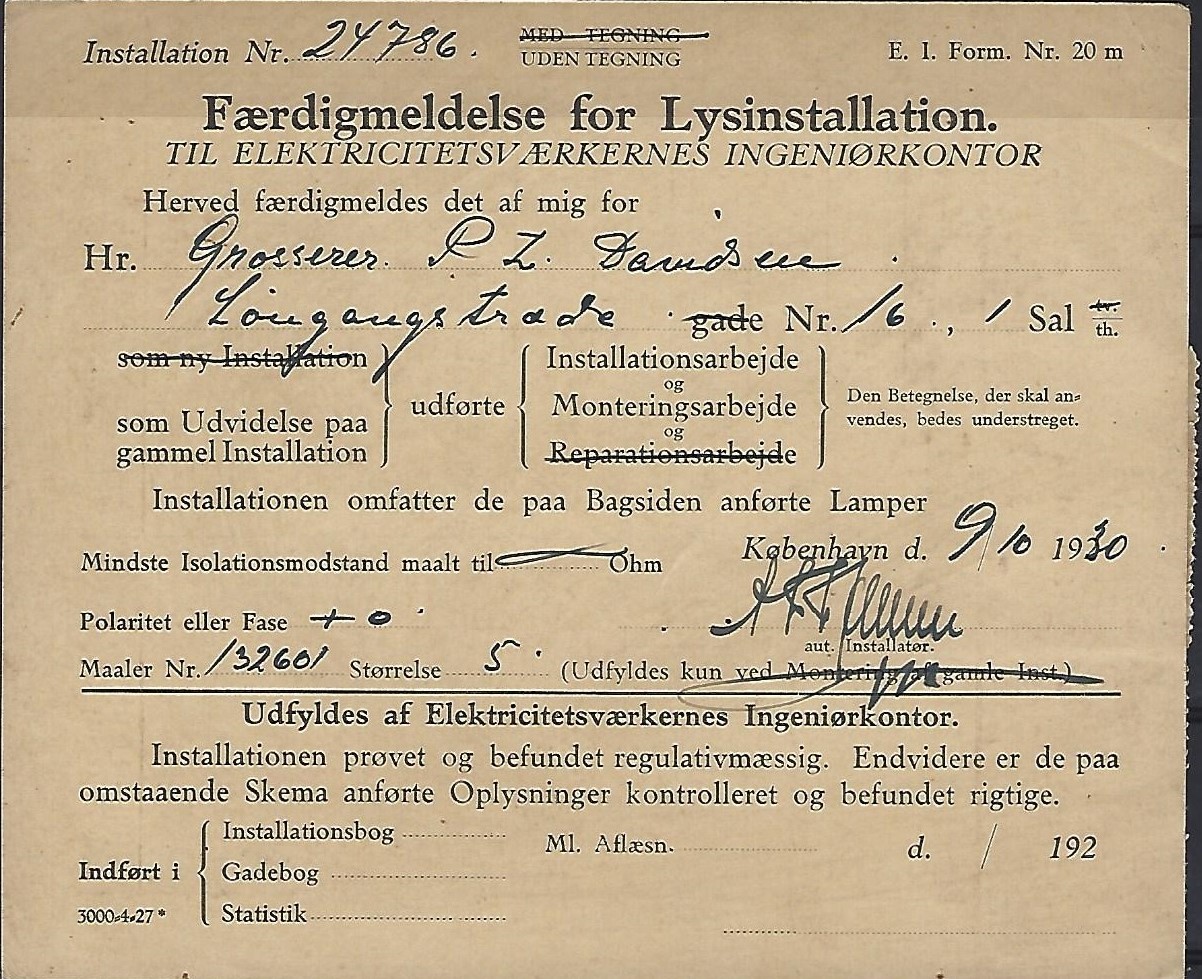 Installation Nr. 24786.
MED TEGNING
UDEN TEGNING
E. I. Form. Nr. 20 m
Færdigmeldelse for Lysinstallation.
TIL ELEKTRICITETSVÆRKERNES INGENIØRKONTOR
Herved færdigmeldes det af mig for
Hr. Grosserer. P Z. Davidsen
Löngangstræde gade Nr. 16., 1 Sal tv. th.
som ny Installation
som Udvidelse paa
gammel Installation
udførte
Installationsarbejde
og
Monteringsarbejde
og
Reparationsarbejde
Den Betegnelse, der skal an=
vendes, bedes understreget.
Installationen omfatter de paa Bagsiden anførte Lamper
København d. 9/10 1930
Mindste Isolationsmodstand maalt til Ohm
Polaritet eller Fase + 0
aut. Installatør.
Maaler Nr. 132601 Størrelse 5 (Udfyldes kun ved Montering gamle Inst.)
Udfyldes af Elektricitetsværkernes Ingeniørkontor.
Installationen prøvet og befundet regulativmæssig. Endvidere er de paa
omstaaende Skema anførte Oplysninger kontrolleret og befundet rigtige.
Indført i
Installationsbog
Gadebog
Statistik
Ml. Aflæsn. d. / 192
3000=4=27*